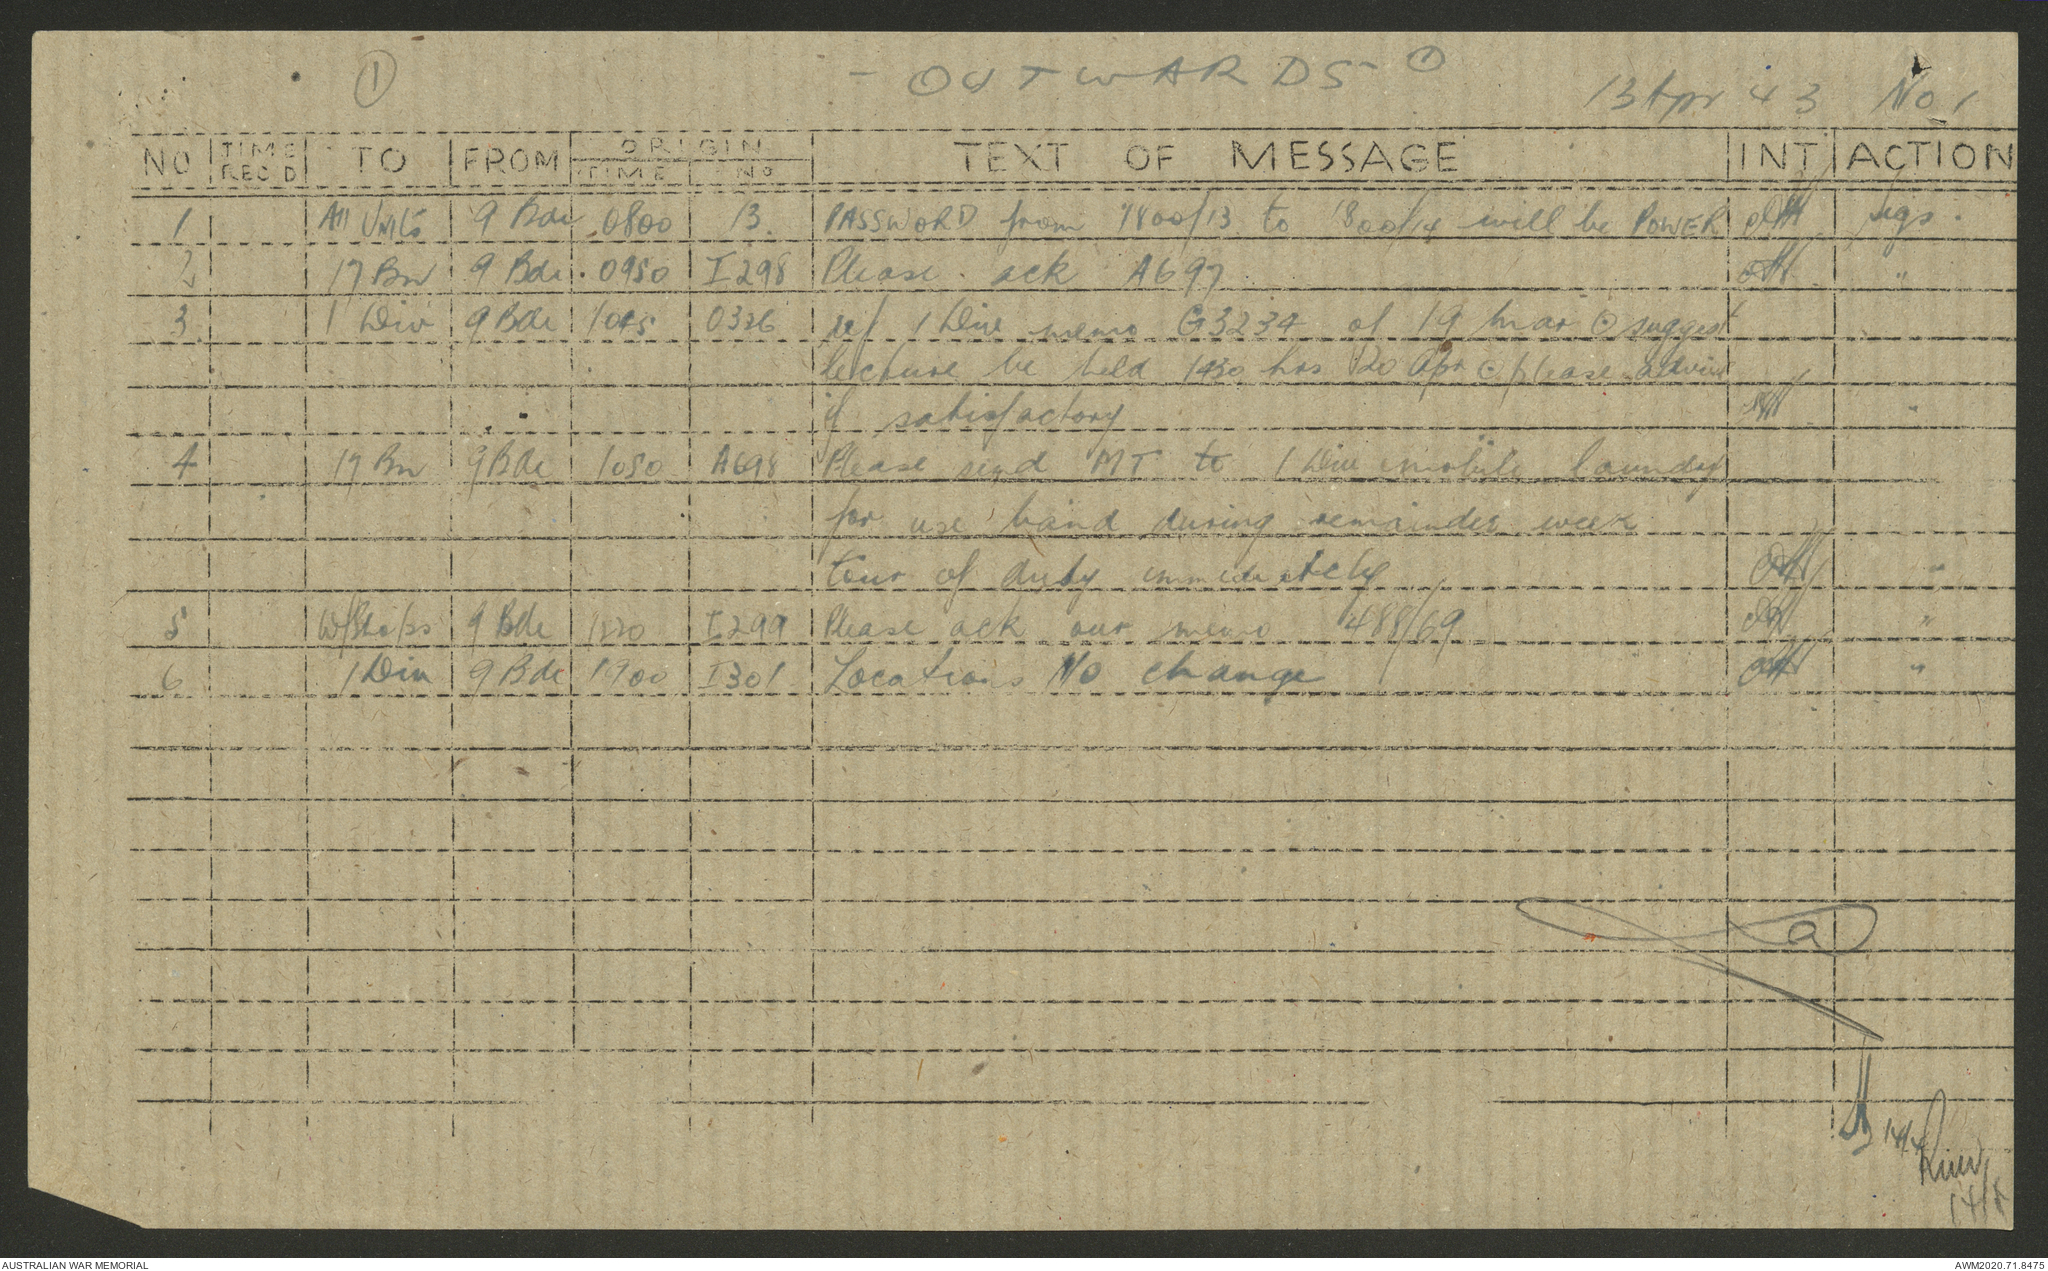 ① - OUTWARDS - ①
13 Apr 43 No 1
NO TIME REC'D TO FROM ORIGIN TIME NO TEXT OF MESSAGE INT ACTION
1 All Units 9 Bde 0800 13 PASSWORD from 1800/13 to 1800/14 will be POWER sigs.
2 17 Bn 9 Bde 0950 I298 Please ack A697 "
3 1 Div 9 Bde 1045 O326 ref 1 Div memo G3234 of 19 Mar ⊙ suggest
lecture be held 1430 hrs 20 Apr ⊙ please advise
if satisfactory "
4 17 Bn 9 Bde 1050 A698 Please send MT to 1 Div mobile laundry
for use band during remainder week
tour of duty immediately "
5 W/Shops 9 Bde 1820 I299 Please ack our memo 488/69 "
6 1 Div 9 Bde 1900 I301 Locations No change "
a
14/4
14/4
AUSTRALIAN WAR MEMORIAL
AWM2020.71.8475